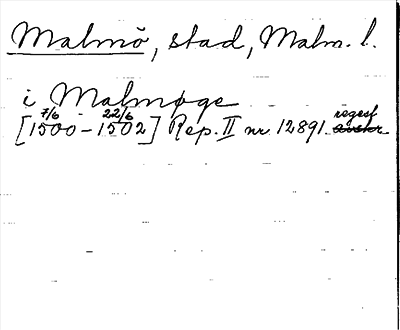 Malmö, stad, Malm. l.
i Malmøge
[7/6 1500 - 22/6 1502] Rep. II nr 12891. regest avskr.